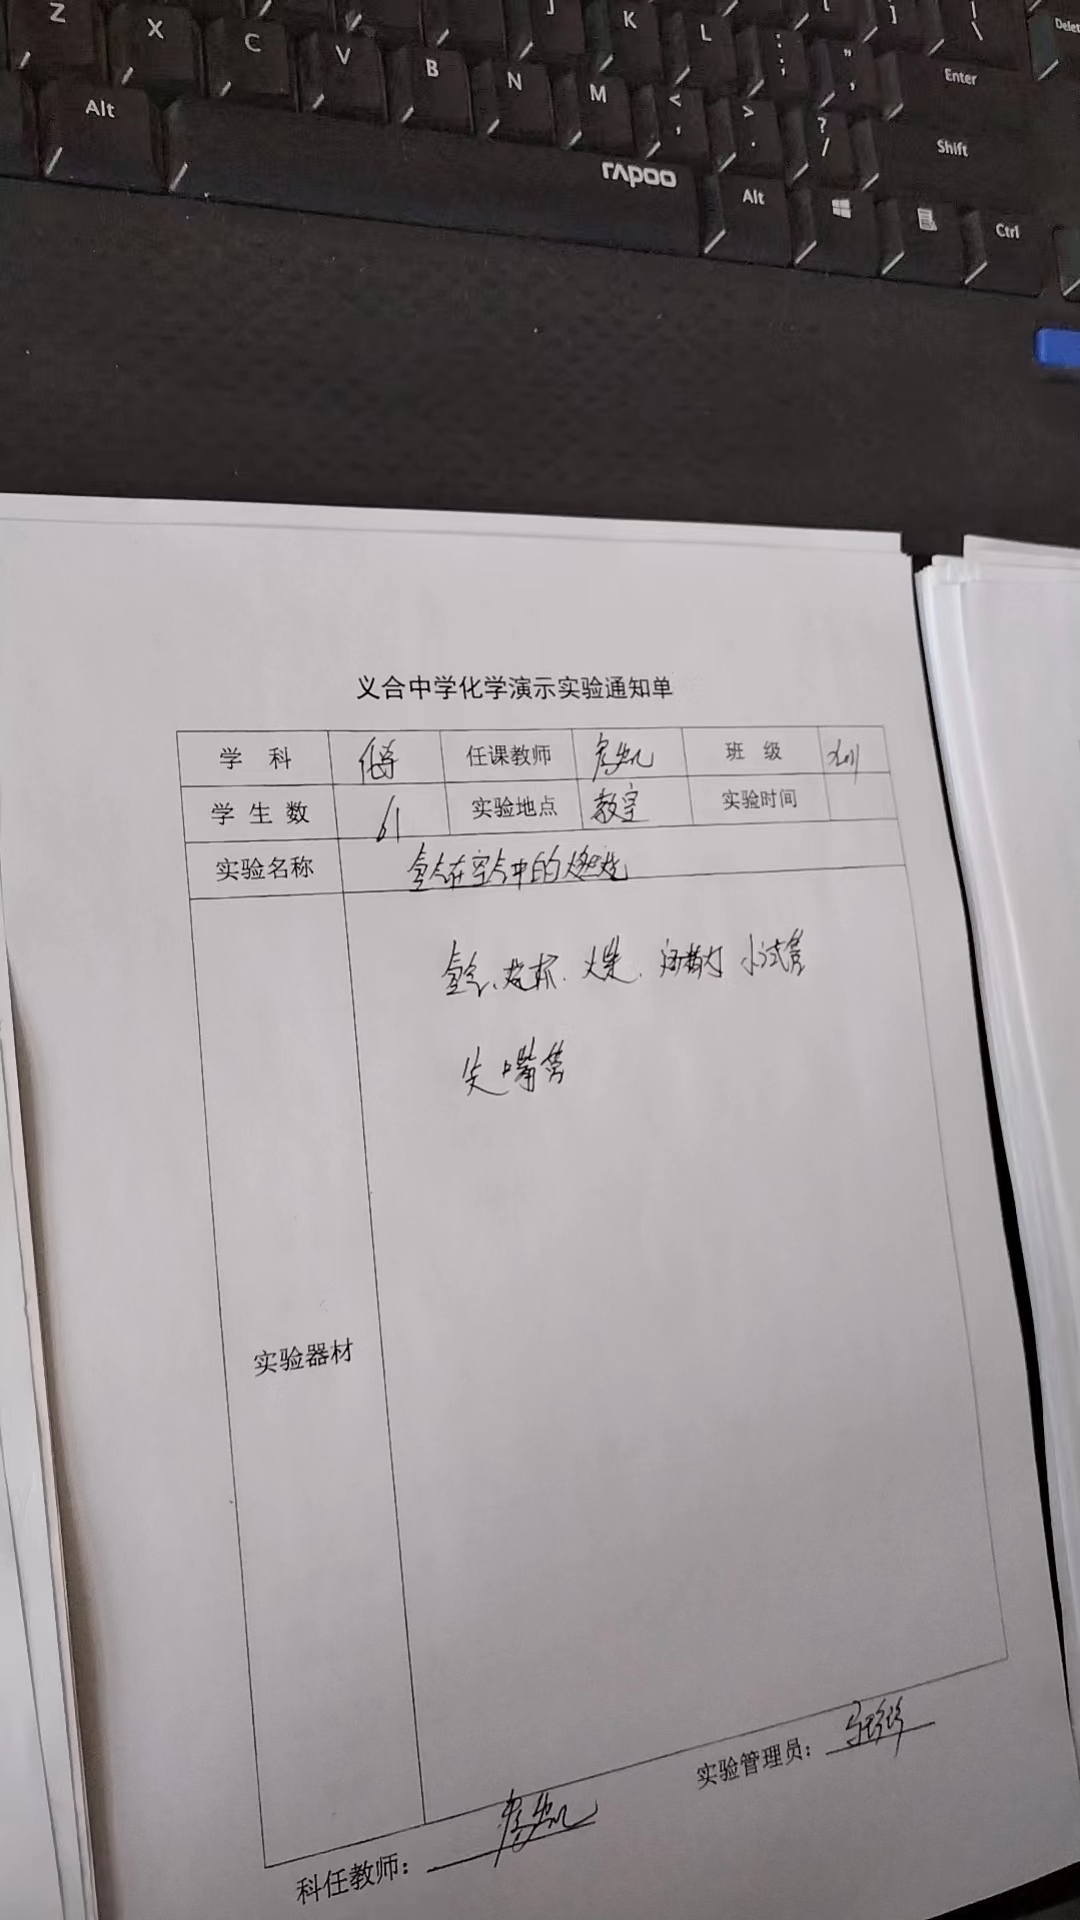 Z X C V B N M < , > . ? / J K L : ; " , [ ] | \ Enter Delete
Alt Shift
rapoo Alt Ctrl
义合中学化学演示实验通知单
学 科 化学 任课教师 班 级
学 生 数 61 实验地点 教室 实验时间
实验名称 氢气在空气中的燃烧
氢气、烧杯、火柴、酒精灯 小试管
尖嘴管
实验器材
实验管理员：
科任教师：